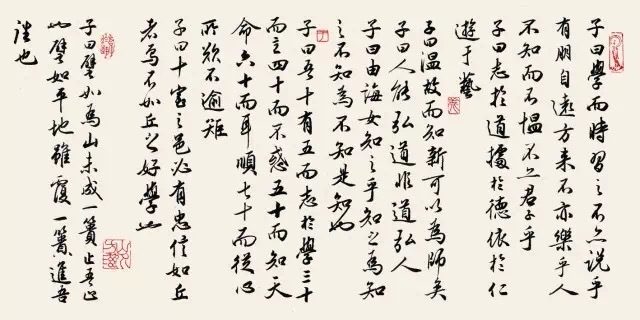 子曰學而時習之不亦説乎
有朋自遠方来不亦樂乎人
不知而不愠不亦君子乎
子曰志於道據於德依於仁
遊于藝
子曰温故而知新可以為師矣
子曰人能弘道非道弘人
子曰由誨女知之乎知之為知
之不知為不知是知也
子曰吾十有五而志於學三十
而立四十而不惑五十而知天
命六十而耳順七十而從心
所欲不逾矩
子曰十室之邑必有忠信如丘
者焉不如丘之好學也
子曰譬如為山未成一簣止吾止
也譬如平地雖覆一簣進吾
往也